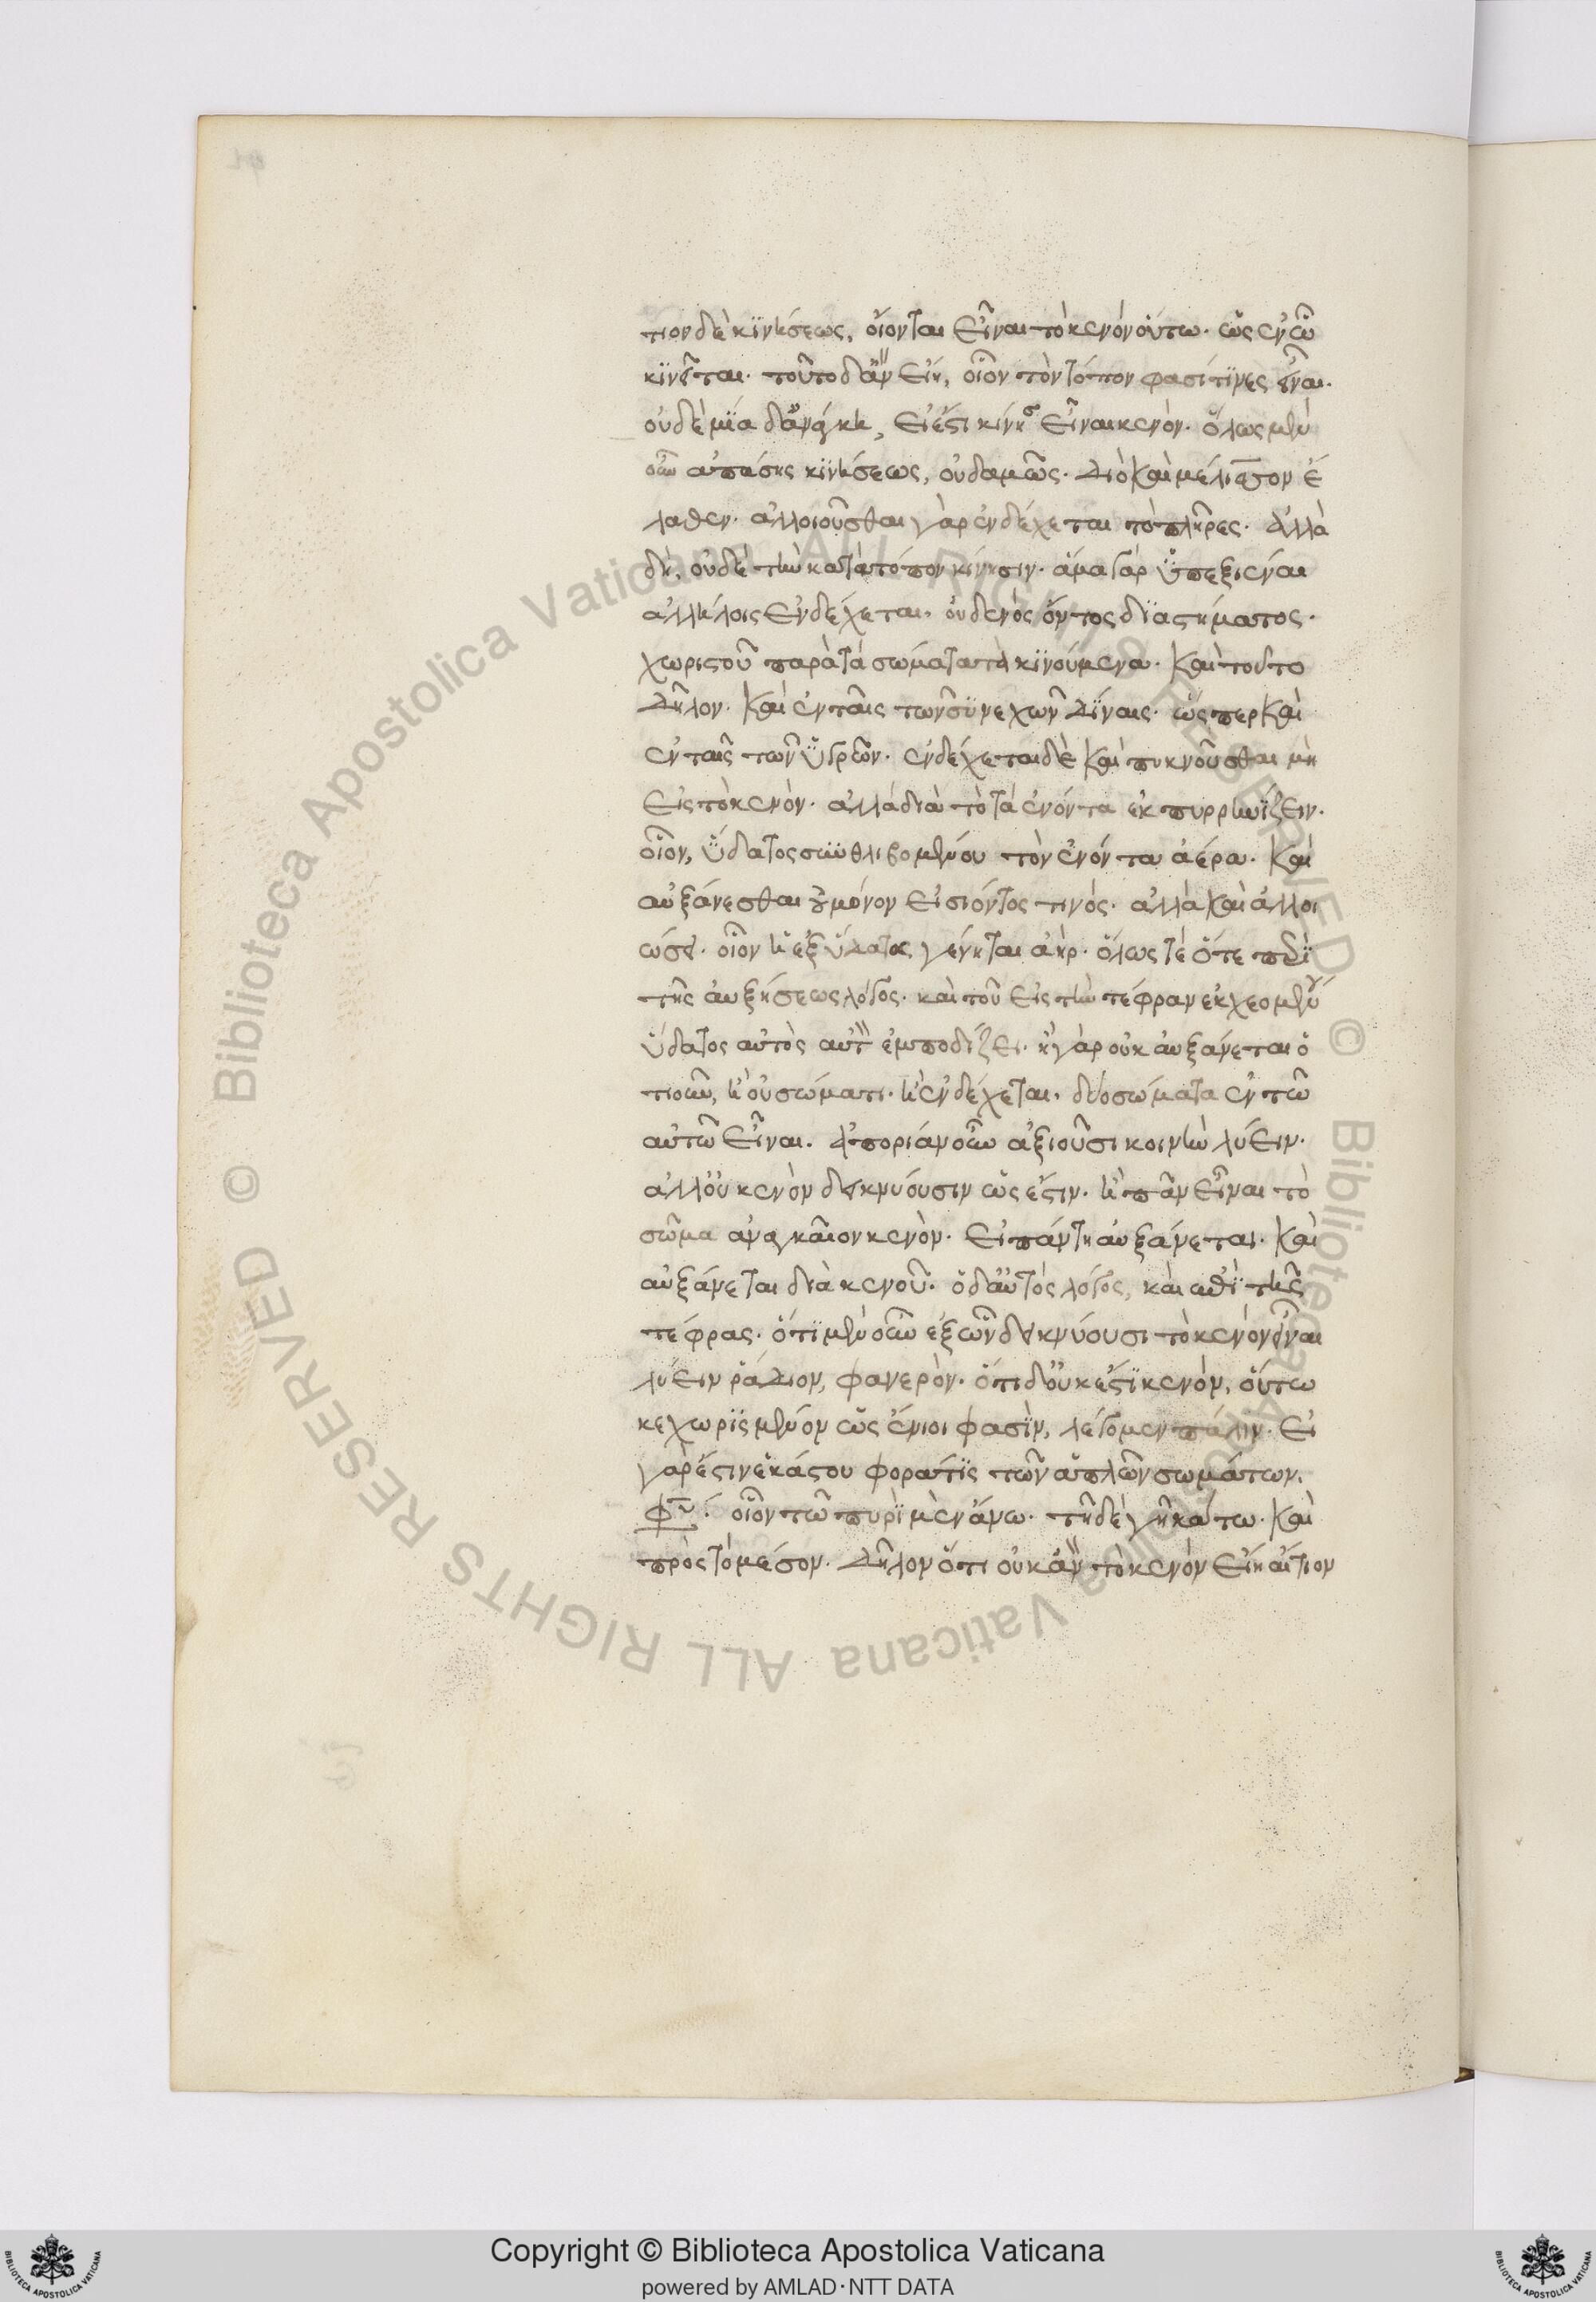 τιον δὲ κϊνήσεως, οἴονται εἶναι τὸ κενὸν οὕτω. ὡς ἐν ὧ
κϊνεῖται. τοῦτο δ' ἂν εἴη, οἷον τὸν τόπον φασί τϊνες εἶναι.
οὐδὲ μΐα δ' ἀνάγκη, εἰ ἔστι κίνησις εἶναι κενὸν. ὅλως μὲν
οὖν ἁπάσης κϊνήσεως, οὐδαμῶς. διὸ καὶ μέλισσον ἔ
λαθεν. ἀλλοιοῦσθαι γὰρ ἐνδέχεται τὸ πλῆρες. ἀλλὰ
δὴ, οὐδὲ τὴν κατὰ τόπον κίνησιν. ἅμα γὰρ ὑπεξιέναι
ἀλλήλοις ἐνδέχεται, οὐδενὸς ὄντος δϊαστήματος.
χωριστοῦ παρὰ τὰ σώματα τὰ κϊνούμενα. καὶ τοῦτο
δῆλον. καὶ ἐν ταῖς τῶν συνεχῶν δΐναις. ὥσπερ καὶ
ἐν ταῖς τῶν ὑγρῶν. ἐνδέχεται δὲ καὶ πυκνοῦσθαι μὴ
εἰς τὸ κενὸν. ἀλλὰ διὰ τὸ τὰ ἐνόντα ἐκπυρρηνΐζειν.
οἷον, ὕδατος συνθλιβομένου τὸν ἐνόντα ἀέρα. καὶ
αὐξάνεσθαι οὐ μόνον εἰσιόντος τινός. ἀλλὰ καὶ ἀλλοι
ώσει. οἷον ἢ ἐξ ὕδατος γένηται ἀὴρ. ὅλως τὲ ὅτε περὶ
τῆς αὐξήσεως λόγος. καὶ τοῦ εἰς τὴν τέφραν ἐκχεομένου
ὕδατος αὐτὸς αὑτὸν ἐμποδίζει. ἢ γὰρ οὐκ αὐξάνεται ὁ
τιοῦν, ἢ οὐ σώματι. ἢ ἐνδέχεται, δύο σώματα ἐν τῶ
αὐτῶ εἶναι. ἀπορίαν οὖν ἀξιοῦσι κοινὴν λύειν.
ἀλλ' οὐ κενὸν δεικνύουσιν ὡς ἔστιν. ἢ πᾶν εἶναι τὸ
σῶμα ἀναγκαῖον κενὸν. εἰ πάντη αὐξάνεται. καὶ
αὐξάνεται διὰ κενοῦ. ὁ δ' αὐτὸς λόγος, καὶ ἐπὶ τῆς
τέφρας. ὅτϊ μὲν οὖν ἐξ ὧν δεικνύουσι τὸ κενὸν εἶναι
λύειν ῥάδιον, φανερὸν. ὅτι δ' οὐκ ἔστϊ κενὸν, οὕτω
κεχωρϊσμένον ὡς ἔνιοι φασὶν, λέγομεν πάλιν. εἰ
γὰρ ἔστιν ἑκάστου φορά τϊς τῶν ἁπλῶν σωμάτων.
φυ: οἷον τῶ πυρῒ μὲν ἄνω. τῆ δὲ γῆ κάτω. καὶ
πρὸς τὸ μέσον. δῆλον ὅτι οὐκ ἂν τὸ κενὸν εἴη αἴτιον
Copyright © Biblioteca Apostolica Vaticana
powered by AMLAD·NTT DATA